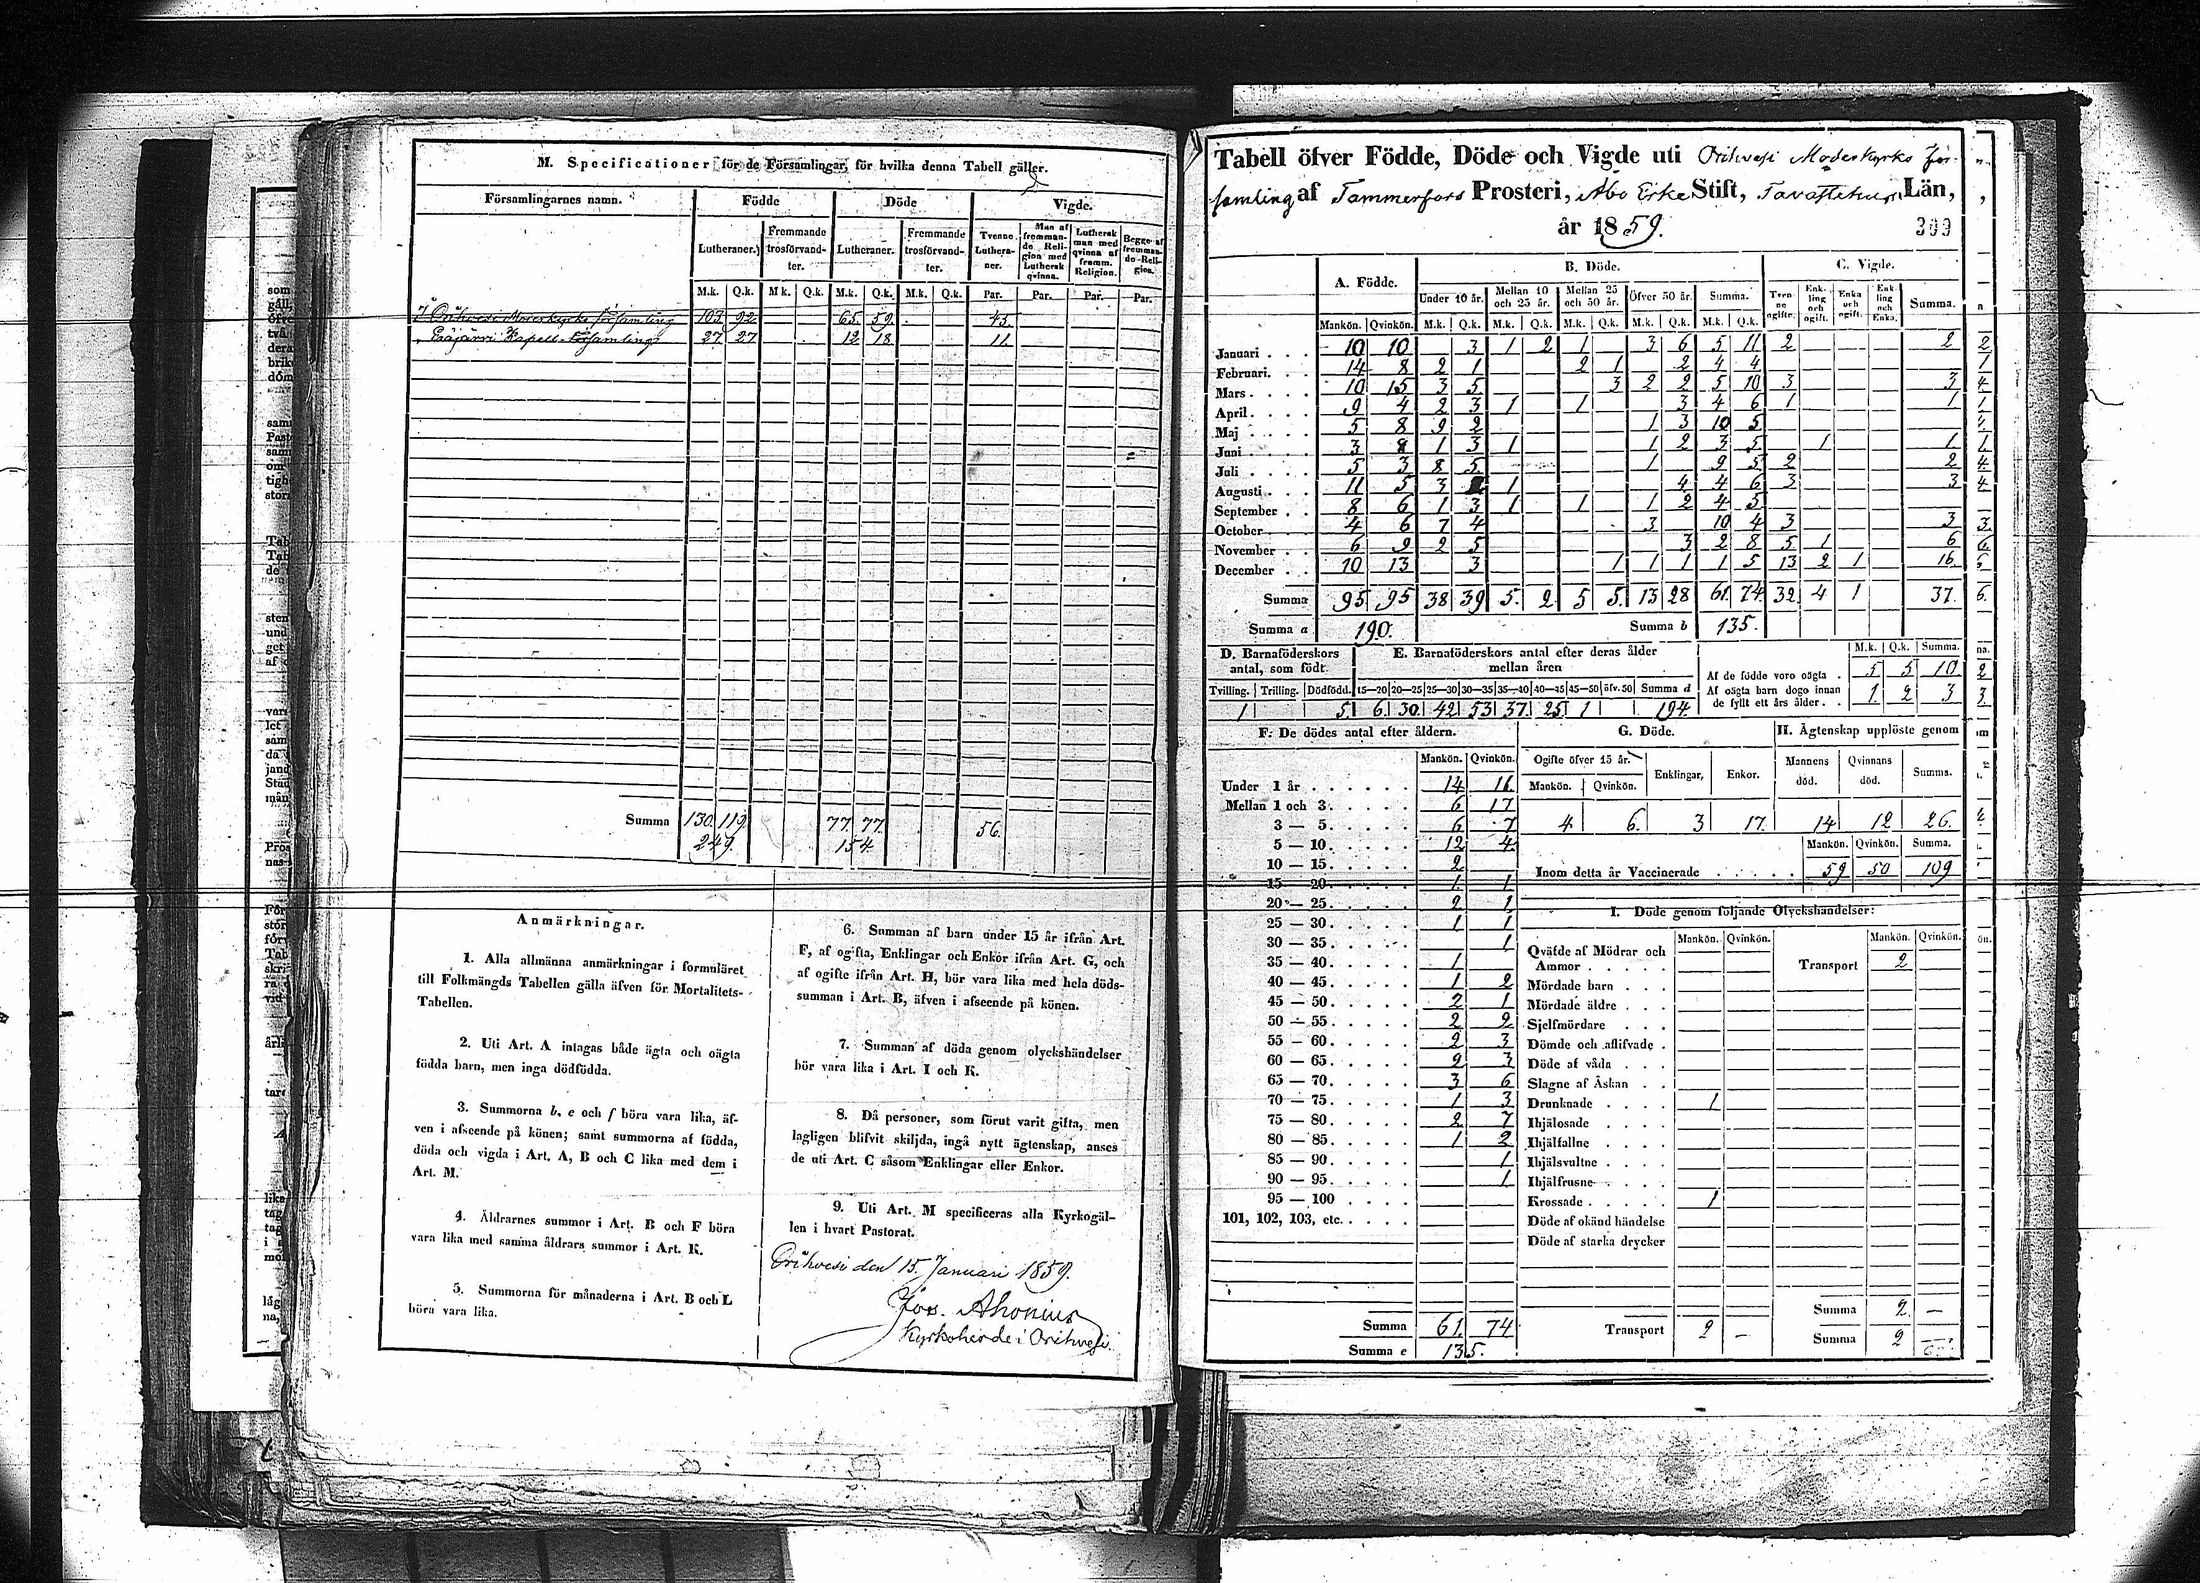 M. Specificationer för de Församlingar, för hvilka denna Tabell gäller.
Församlingarnes namn. Födde Döde Vigde.
Lutheraner. Fremmande trosförvandter. Lutheraner. Fremmande trosförvandter. Tvenne Lutheraner. Man af fremmande Religion med Luthersk qvinna. Luthersk man med qvinna af fremm. Religion. Begge af fremmande Religion.
M.k. Q.k. M.k. Q.k. M.k. Q.k. M.k. Q.k. Par. Par. Par. Par.
I Orihvesi Moderkyrko församling 103 92 65 59 45
" Eräjärvi Kapell-församling 27 27 12 18 11
Summa 130 119 77 77 56.
249. 154.
Anmärkningar.
1. Alla allmänna anmärkningar i formuläret
till Folkmängds Tabellen gälla äfven för Mortalitets-
Tabellen.
2. Uti Art. A intagas både ägta och oägta
födda barn, men inga dödfödda.
3. Summorna b, e och f böra vara lika, äf-
ven i afseende på könen; samt summorna af födda,
döda och vigda i Art. A, B och C lika med dem i
Art. M.
4. Åldrarnes summor i Art. B och F böra
vara lika med samma åldrars summor i Art. K.
5. Summorna för månaderna i Art. B och L
böra vara lika.
6. Summan af barn under 15 år ifrån Art.
F, af ogifta, Enklingar och Enkor ifrån Art. G, och
af ogifte ifrån Art. H, bör vara lika med hela döds-
summan i Art. B, äfven i afseende på könen.
7. Summan af döda genom olyckshändelser
bör vara lika i Art. I och K.
8. Då personer, som förut varit gifta, men
lagligen blifvit skiljda, ingå nytt ägtenskap, anses
de uti Art. C såsom Enklingar eller Enkor.
9. Uti Art. M specificeras alla Kyrkogäl-
len i hvart Pastorat.
Orihvesi den 15. Januari 1859.
Jos. Ahonius
Kyrkoherde i Orihvesi.
Tabell öfver Födde, Döde och Vigde uti Orihvesi Moderkyrko för-
samling af Tammerfors Prosteri, Åbo Erke Stift, Tavastehus Län,
år 1859.
309
A. Födde. B. Döde. C. Vigde.
Under 10 år. Mellan 10 och 25 år. Mellan 25 och 50 år. Öfver 50 år. Summa. Tvenne ogifte. Enkling och ogift. Enka och ogift. Enkling och Enka. Summa.
Mankön. Qvinkön. M.k. Q.k. M.k. Q.k. M.k. Q.k. M.k. Q.k. M.k. Q.k.
Januari 10 10 3 1 2 1 3 6 5 11 2 2
Februari 14 8 2 1 2 1 2 4 4
Mars 10 15 3 5 3 2 2 5 10 3 3
April 9 4 2 3 1 1 3 4 6 1 1
Maj 5 8 9 2 1 3 10 5
Juni 3 8 1 3 1 1 2 3 5 1 1
Juli 5 3 8 5 1 9 5 2 2
Augusti 11 5 3 1 4 4 6 3 3
September 8 6 1 3 1 1 1 2 4 5
October 4 6 7 4 3 10 4 3 3
November 6 9 2 5 3 2 8 5 1 6
December 10 13 3 1 1 1 1 5 13 2 1 16
Summa 95 95 38 39 5 2 5 5 13 28 61 74 32 4 1 37.
Summa a 190. Summa b 135.
D. Barnaföderskors antal, som födt. E. Barnaföderskors antal efter deras ålder mellan åren
M.k. Q.k. Summa.
Af de födde voro oägta 5 5 10
Af oägta barn dogo innan de fyllt ett års ålder 1 2 3
Tvilling. Trilling. Dödfödd. 15—20 20—25 25—30 30—35 35—40 40—45 45—50 öfv. 50 Summa d
1 5 6 30 42 53 37 25 1 194
F. De dödes antal efter åldern. G. Döde. H. Ägtenskap upplöste genom
Mankön. Qvinkön. Ogifte öfver 15 år. Mankön. Qvinkön. Enklingar, Enkor. Mannens död. Qvinnans död. Summa.
4 6 3 17 14 12 26
Mankön. Qvinkön. Summa.
Inom detta år Vaccinerade 59 50 109
Under 1 år 14 11
Mellan 1 och 3 6 17
3 — 5 6 7
5 — 10 12 4
10 — 15 2
15 — 20 1 1
20 — 25 2 1
25 — 30 1 1
30 — 35 1
35 — 40 1
40 — 45 1 2
45 — 50 2 1
50 — 55 2 2
55 — 60 2 3
60 — 65 2 3
65 — 70 3 6
70 — 75 1 3
75 — 80 2 7
80 — 85 1 2
85 — 90 1
90 — 95 1
95 — 100
101, 102, 103, etc.
Summa 61 74
Summa e 135.
I. Döde genom följande Olyckshändelser:
Mankön. Qvinkön. Mankön. Qvinkön.
Qväfde af Mödrar och Ammor Transport 2
Mördade barn
Mördade äldre
Sjelfmördare
Dömde och aflifvade
Döde af våda
Slagne af Åskan
Drunknade 1
Ihjälosade
Ihjälfallne
Ihjälsvultne
Ihjälfrusne
Krossade 1
Döde af okänd händelse
Döde af starka drycker
Summa 2 —
Transport 2 — Summa 2